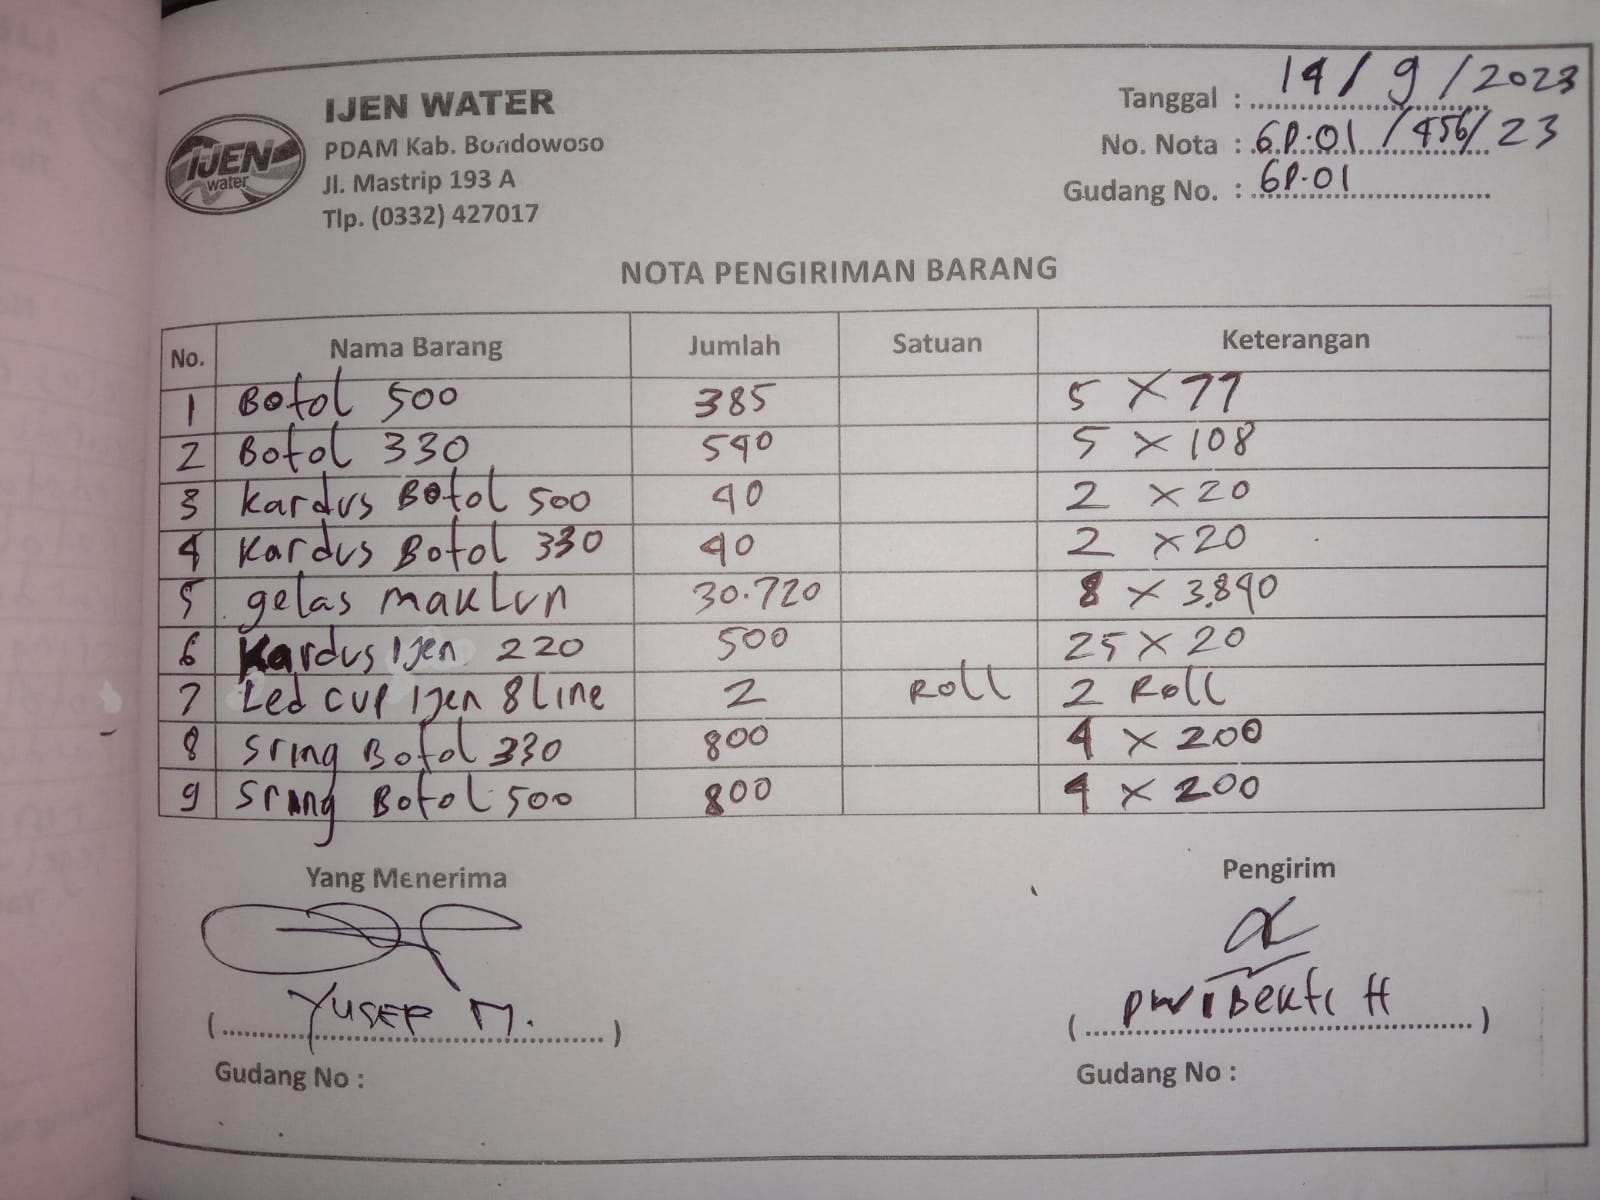 IJEN
water
IJEN WATER
PDAM Kab. Bondowoso
Jl. Mastrip 193 A
Tlp. (0332) 427017
Tanggal : 14/9/2023
No. Nota : GP.01/456/23
Gudang No. : GP.01
NOTA PENGIRIMAN BARANG
No. Nama Barang Jumlah Satuan Keterangan
1 Botol 500 385 5 x 77
2 Botol 330 540 5 x 108
3 Kardus Botol 500 40 2 x 20
4 Kardus Botol 330 40 2 x 20
5 gelas maklun 30.720 8 x 3.840
6 Kardus Ijen 220 500 25 x 20
7 Led cup Ijen 8 line 2 Roll 2 Roll
8 Sring Botol 330 800 4 x 200
9 Sring Botol 500 800 4 x 200
Yang Menerima Pengirim
(YUSEP M.) (Dwi Bekti H)
Gudang No : Gudang No :